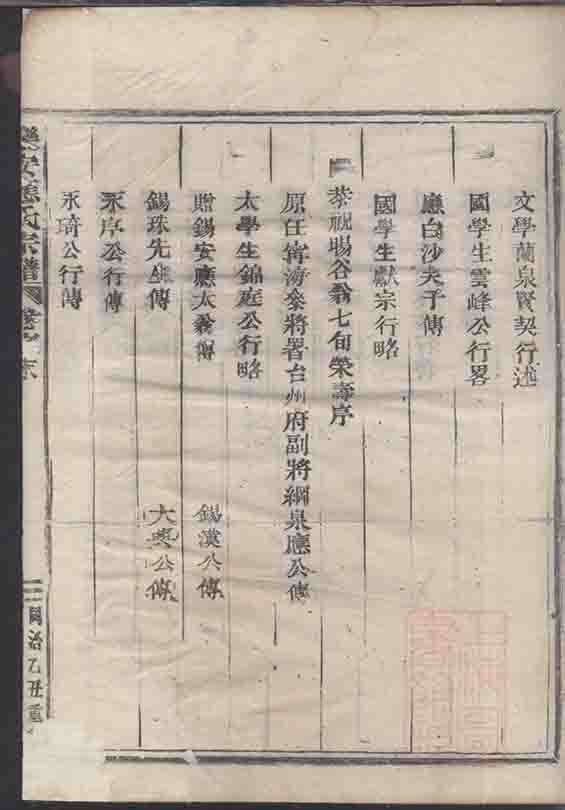 文學蘭泉賢契行述
國學生雲峰公行畧
應白沙夫子傳
國學生獻宗行略
恭祝暘谷翁七旬榮壽序
原任寧海參將署台州府副將綱泉應公傳
太學生錦庭公行略
贈錫安應太翁傳 錫漢公傳
錫珠先生傳 大興公傳
永序公行傳
永琦公行傳
應氏宗譜 卷
同治乙丑重